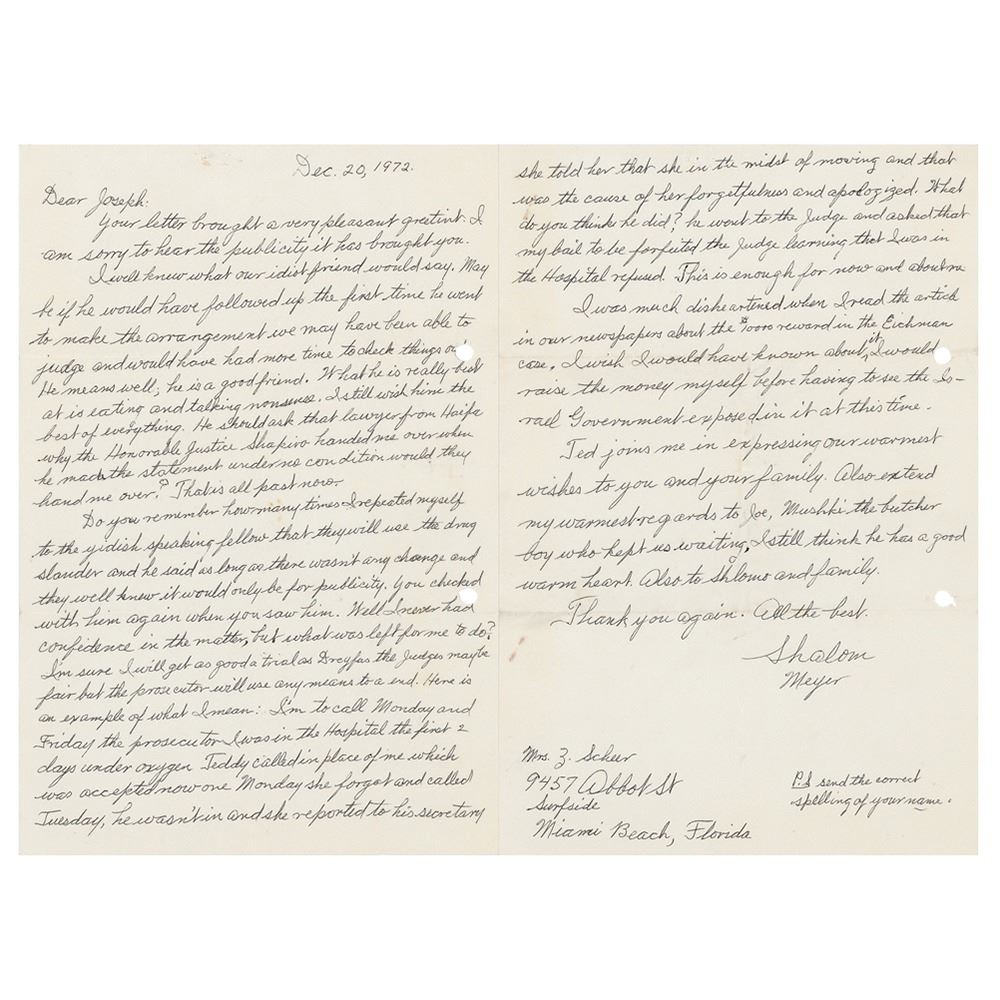 Dec. 20, 1972.
Dear Joseph:
Your letter brought a very pleasant greetint. I
am sorry to hear the publicity it has brought you.
I well knew what our idiot friend would say. May
be if he would have followed up the first time he went
to make the arrangement we may have been able to
judge and would have had more time to check things ou
He means well; he is a good friend. What he is really best
at is eating and talking nonsense. I still wish him the
best of everything. He should ask that lawyer from Haifa
why the Honorable Justice Shapiro handed me over when
he made the statement under no condition would they
hand me over? That is all past now.
Do you remember how many times I repeated myself
to the yidish speaking fellow that they will use the drug
slander and he said as long as there wasn't any change and
they well knew it would only be for publicity. You checked
with him again when you saw him. Well I never had
confidence in the matter, but what was left for me to do?
I'm sure I will get as good a trial as Dreyfas the Judges maybe
fair but the prosecutor will use any means to a end. Here is
an example of what I mean: I'm to call Monday and
Friday the prosecutor I was in the Hospital the first 2
days under oxygen Teddy called in place of me which
was accepted now one Monday she forgot and called
Tuesday, he wasn't in and she reported to his secretary
she told her that she in the midst of moving and that
was the cause of her forgetfulness and apologized. What
do you think he did? he went to the Judge and asked that
my bail to be forfeited the Judge learning that I was in
the Hospital refused. This is enough for now and about me
I was much disheartened when I read the article
in our newspapers about the reward in the Eichman
case. I wish I would have known about it, I would
raise the money myself before having to see the Is-
rael Government exposed in it at this time.
Ted joins me in expressing our warmest
wishes to you and your family. Also extend
my warmest regards to Joe, Mushki the butcher
boy who kept us waiting, I still think he has a good
warm heart. Also to Shlomo and family.
Thank you again. All the best.
Shalom
Meyer
Mrs. Z. Scheer
9457 Abbot St
Surfside
Miami Beach, Florida
P.S send the correct
spelling of your name.